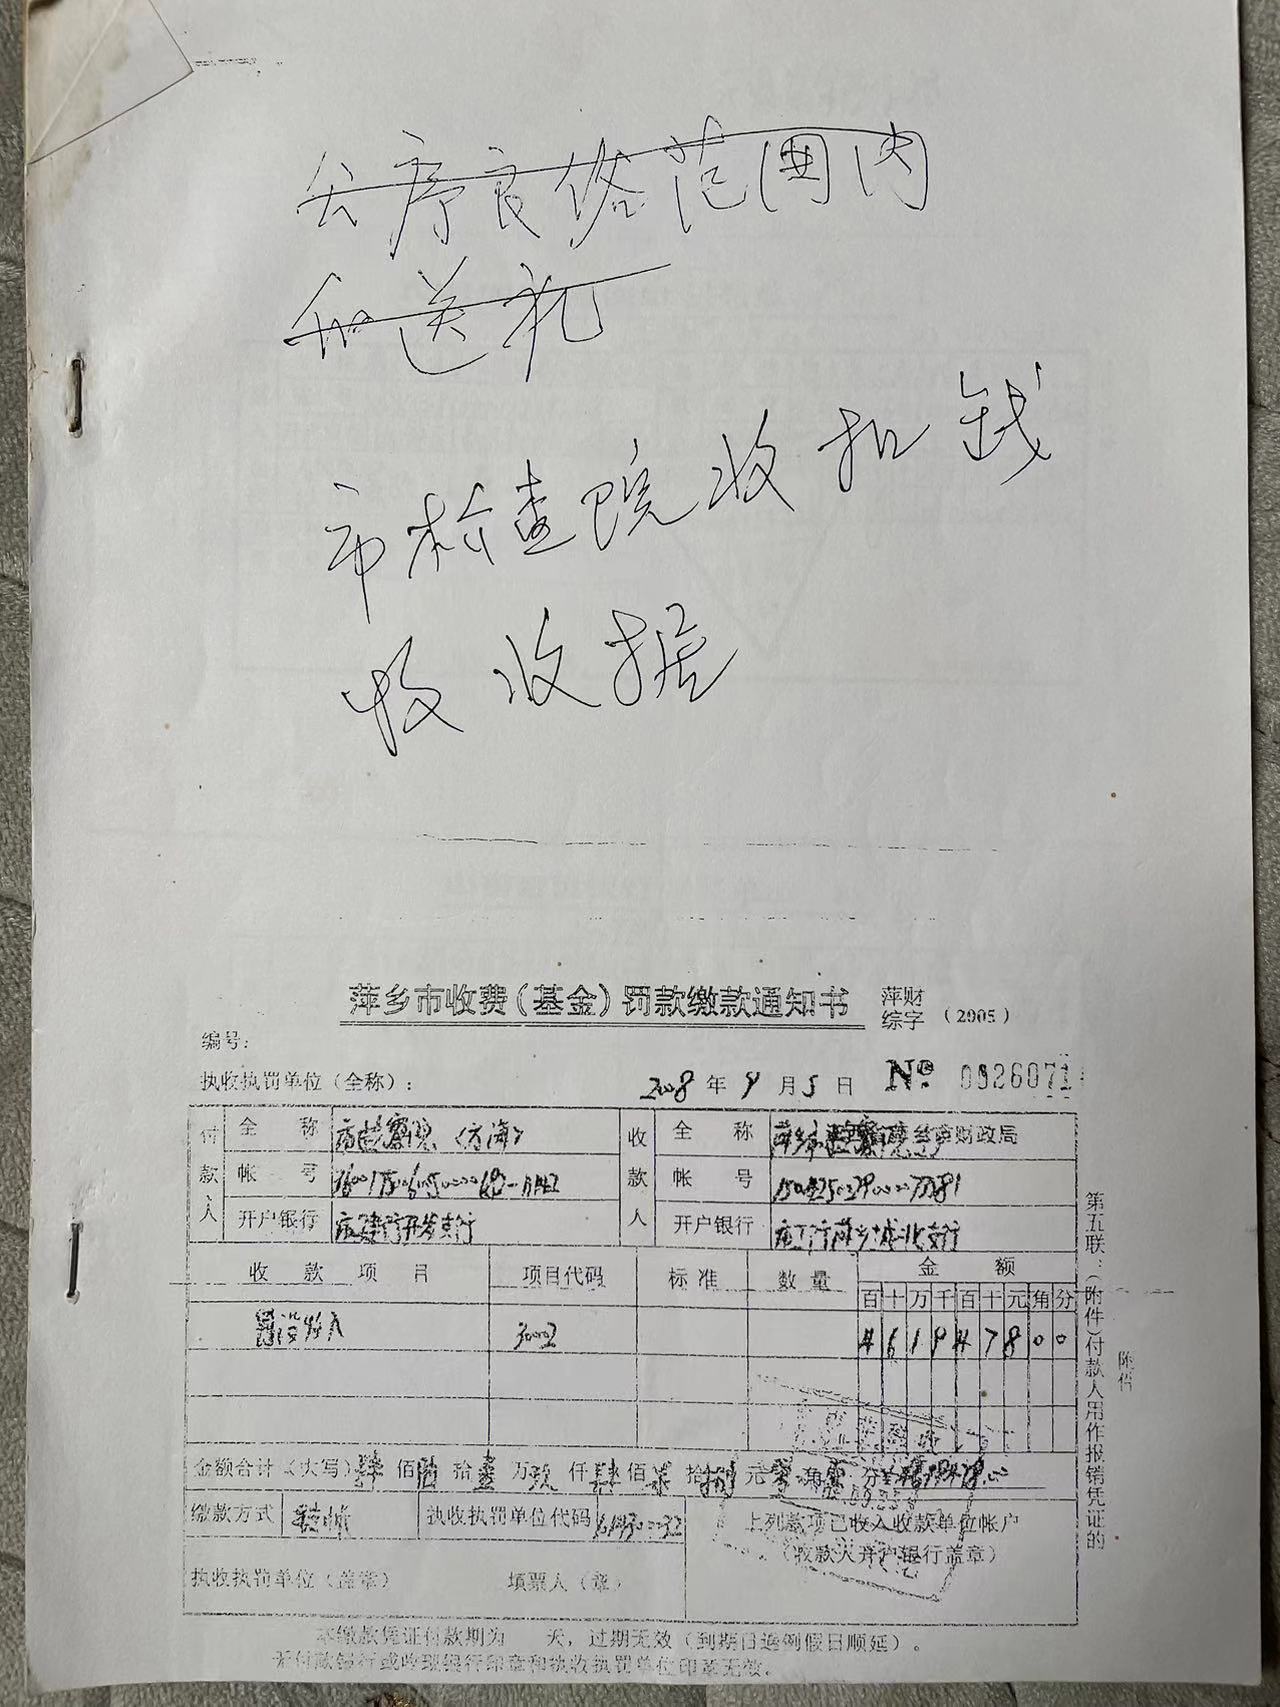 公序良俗范围内
和送礼
市检查院收扣钱
收收据
萍乡市收费（基金）罚款缴款通知书 萍财综字（2005）
编号：
执收执罚单位（全称）： 2008年9月5日 №. 0026071
付款人 全称 市检察院（方海） 收款人 全称 萍乡市财政局
帐号 帐号
开户银行 市建行开发支行 开户银行 市工行萍乡城北支行
收款项目 项目代码 标准 数量 金额
百十万千百十元角分
罚没收入 4 6 1 9 4 7 8 0 0
金额合计（大写）肆佰陆拾壹万玖仟肆佰柒拾捌元零角零分
缴款方式 转帐 执收执罚单位代码 上列款项已收入收款单位帐户
（收款人开户银行盖章）
执收执罚单位（盖章） 填票人（章）
本缴款凭证付款期为 天，过期无效（到期日遇例假日顺延）。
无付款银行或收现银行印章和执收执罚单位印章无效。
第五联：（附件）付款人用作报销凭证的
附件